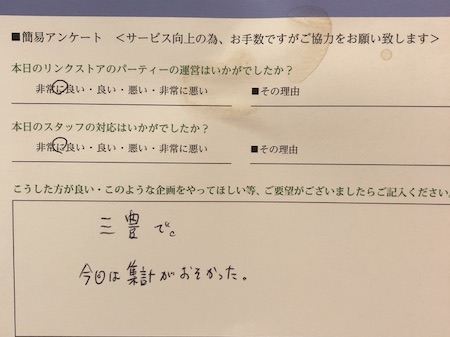 ■簡易アンケート ＜サービス向上の為、お手数ですがご協力をお願い致します＞
本日のリンクストアのパーティーの運営はいかがでしたか？
非常に良い・良い・悪い・非常に悪い ■その理由
本日のスタッフの対応はいかがでしたか？
非常に良い・良い・悪い・非常に悪い ■その理由
こうした方が良い・このような企画をやってほしい等、ご要望がございましたらご記入ください。
三豊で。
今日は集計がおそかった。